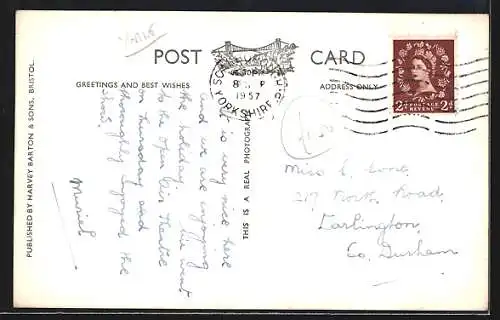 POST CARD
GREETINGS AND BEST WISHES
ADDRESS ONLY
PUBLISHED BY HARVEY BARTON & SONS, BRISTOL.
THIS IS A REAL PHOTOGRAPH
YORKSHIRE
1957
2d POSTAGE REVENUE 2d
It is very nice here
and we are enjoying
the holiday. We went
to the Open Air Theatre
on Thursday and
thoroughly enjoyed the
show.
Muriel
Miss
217 North Road,
Darlington,
Co. Durham